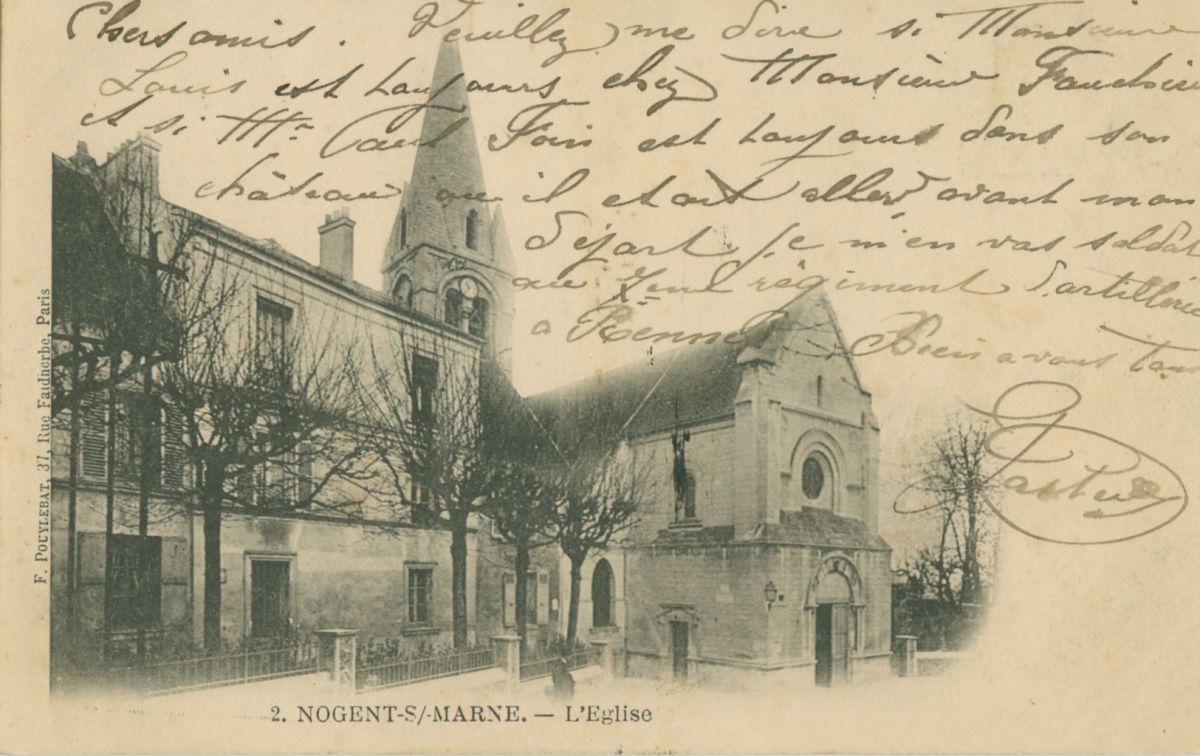 Chers amis. Veuillez me dire si Monsieur
Louis est toujours chez Monsieur
et si Mr Paul Foin est toujours dans son
château ou il etait aller avant mon
départ. Je m'en vas soldat
au 7eme régiment d'artillerie
a Rennes. Bien avous tous
F. POUYLEBAT, 37, Rue Faidherbe, Paris
2. NOGENT-S/-MARNE. — L'Eglise